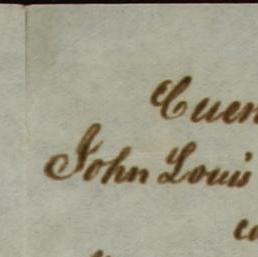 Cuen
John Louis